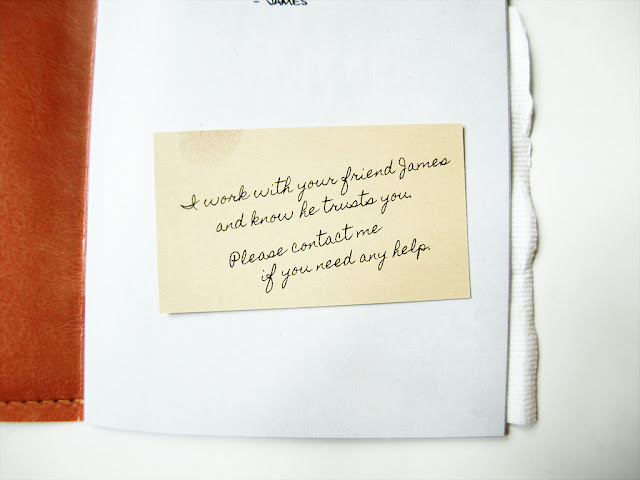 - JAMES
I work with your friend James
and know he trusts you.
Please contact me
if you need any help.